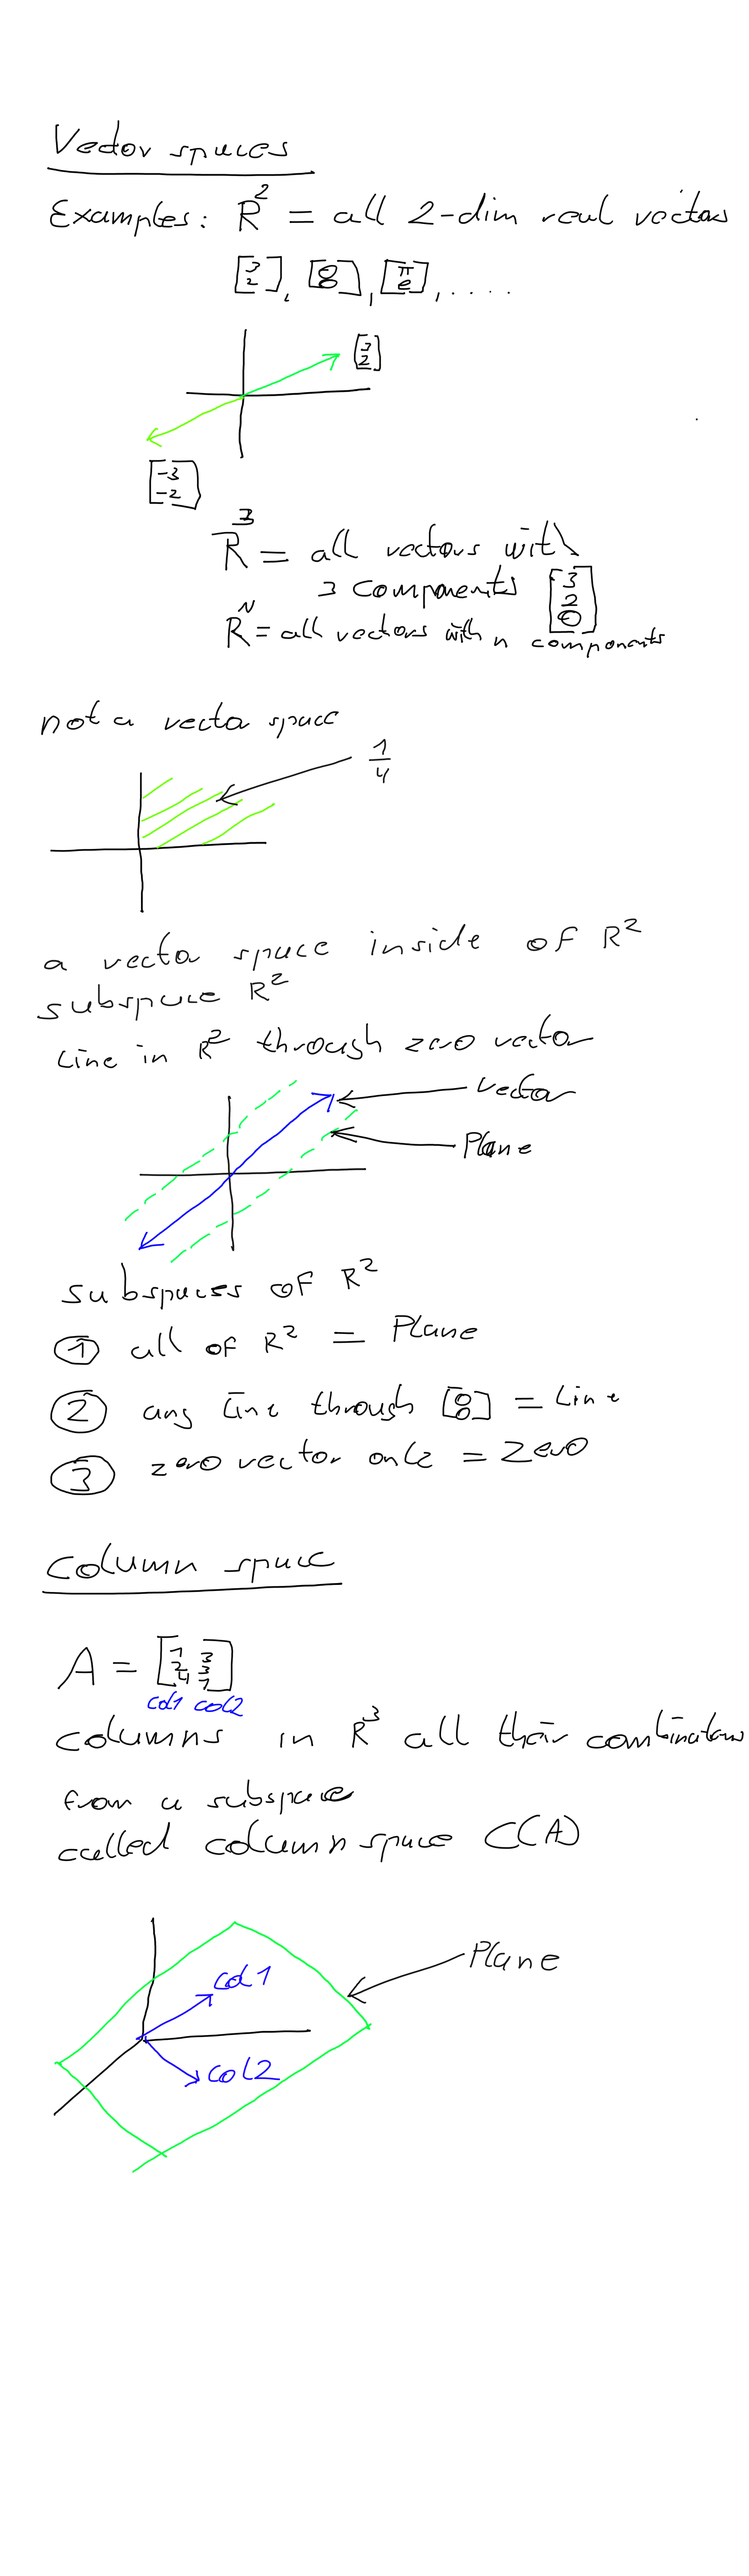 Vector spaces
Examples: R² = all 2-dim real vectors
[3 2], [0 0], [π e], ....
[3 2]
[-3 -2]
R³ = all vectors with
3 components [3 2 0]
Rᴺ = all vectors with n components
not a vector space
1/4
a vector space inside of R²
subspace R²
Line in R² through zero vector
vector
Plane
subspaces of R²
① all of R² = Plane
② any line through [0 0] = Line
③ zero vector only = Zero
Column space
A = [1 3 2 3 4 1]
col1 col2
columns in R³ all their combinations
from a subspace
called column space C(A)
Plane
col1
col2